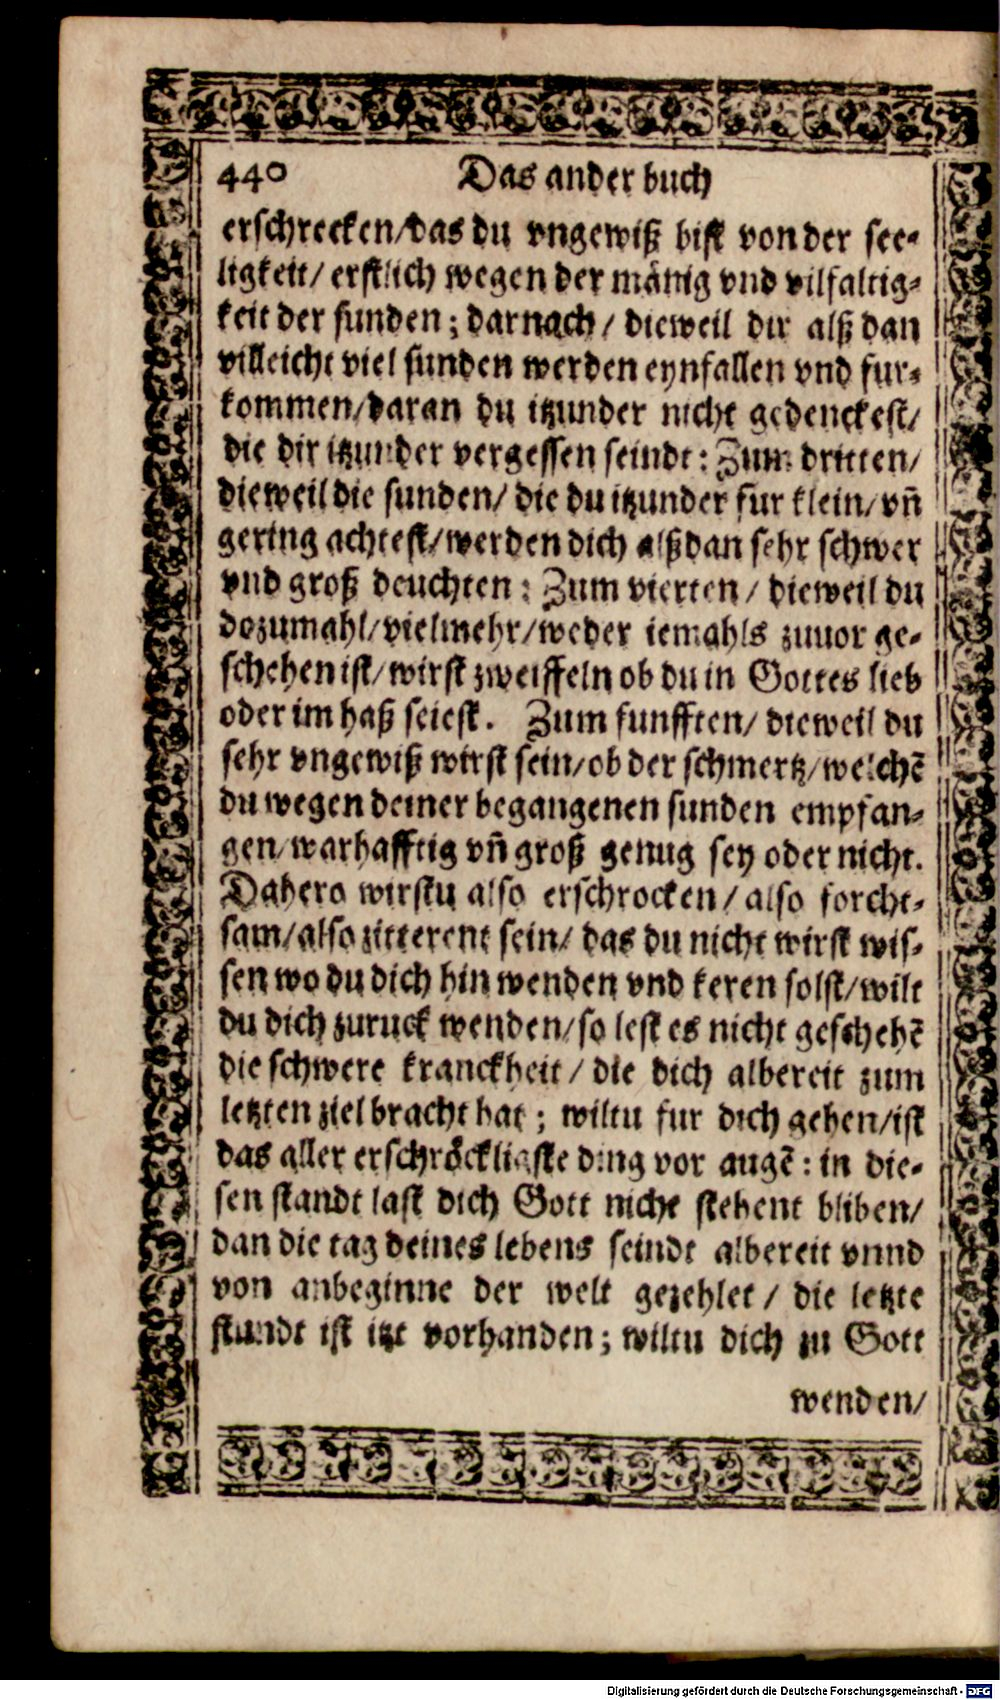 440 Das ander buch
erschrecken/das du vngewiß bist von der see-
ligkeit/ erstlich wegen der mänig vnd vilfaltig-
keit der sunden; darnach/ dieweil dir alß dan
villeicht viel sunden werden eynfallen vnd fur-
kommen/daran du itzunder nicht gedenckest/
die dir itzunder vergessen seindt: Zum dritten/
dieweil die sunden/ die du itzunder fur klein/ vn̄
gering achtest/werden dich alß dan sehr schwer
vnd groß deuchten: Zum vierten/ dieweil du
dozumahl/vielmehr/weder iemahls zuuor ge-
schehen ist/wirst zweiffeln ob du in Gottes lieb
oder im haß seiest. Zum funfften/ dieweil du
sehr vngewiß wirst sein/ob der schmertz/welchē
du wegen deiner begangenen sunden empfan-
gen/warhafftig vn̄ groß genug sey oder nicht.
Dahero wirstu also erschrocken/ also forcht-
sam/also zitterent sein/ das du nicht wirst wis-
sen wo du dich hin wenden vnd keren solst/wilt
du dich zuruck wenden/so lest es nicht geschehē
die schwere kranckheit/ die dich albereit zum
letzten ziel bracht hat; wiltu fur dich gehen/ist
das aller erschröckligste ding vor augē: in die-
sen standt last dich Gott nicht stehent bliben/
dan die tag deines lebens seindt albereit vnnd
von anbeginne der welt gezehlet/ die letzte
stundt ist itzt vorhanden; wiltu dich zu Gott
wenden/
Digitalisierung gefördert durch die Deutsche Forschungsgemeinschaft - DFG